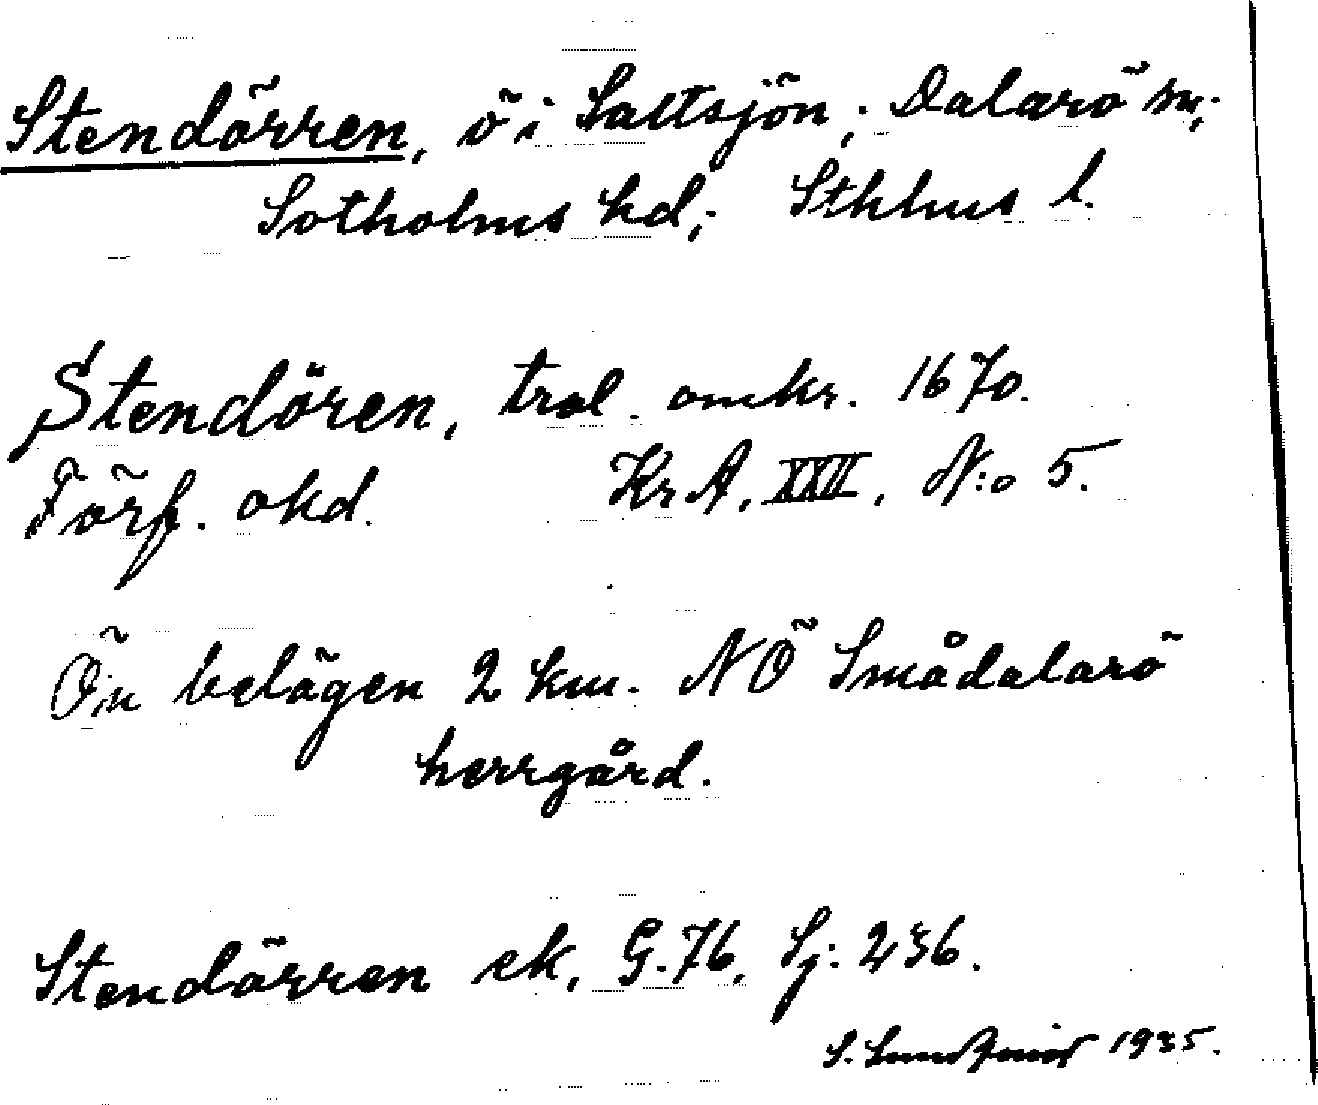 Stendörren, ö i Saltsjön; Dalarö sn,
Sotholms hd, Sthlms l.
Stendören, trol. omkr. 1670.
Förf. okd. KrA, XXII, N:o 5.
Ön belägen 2 km. NÖ Smådalarö
herrgård.
Stendörren ek, G.76, Sj: 236.
S. 1935.